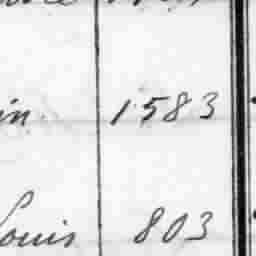 in 1583
Louis 803